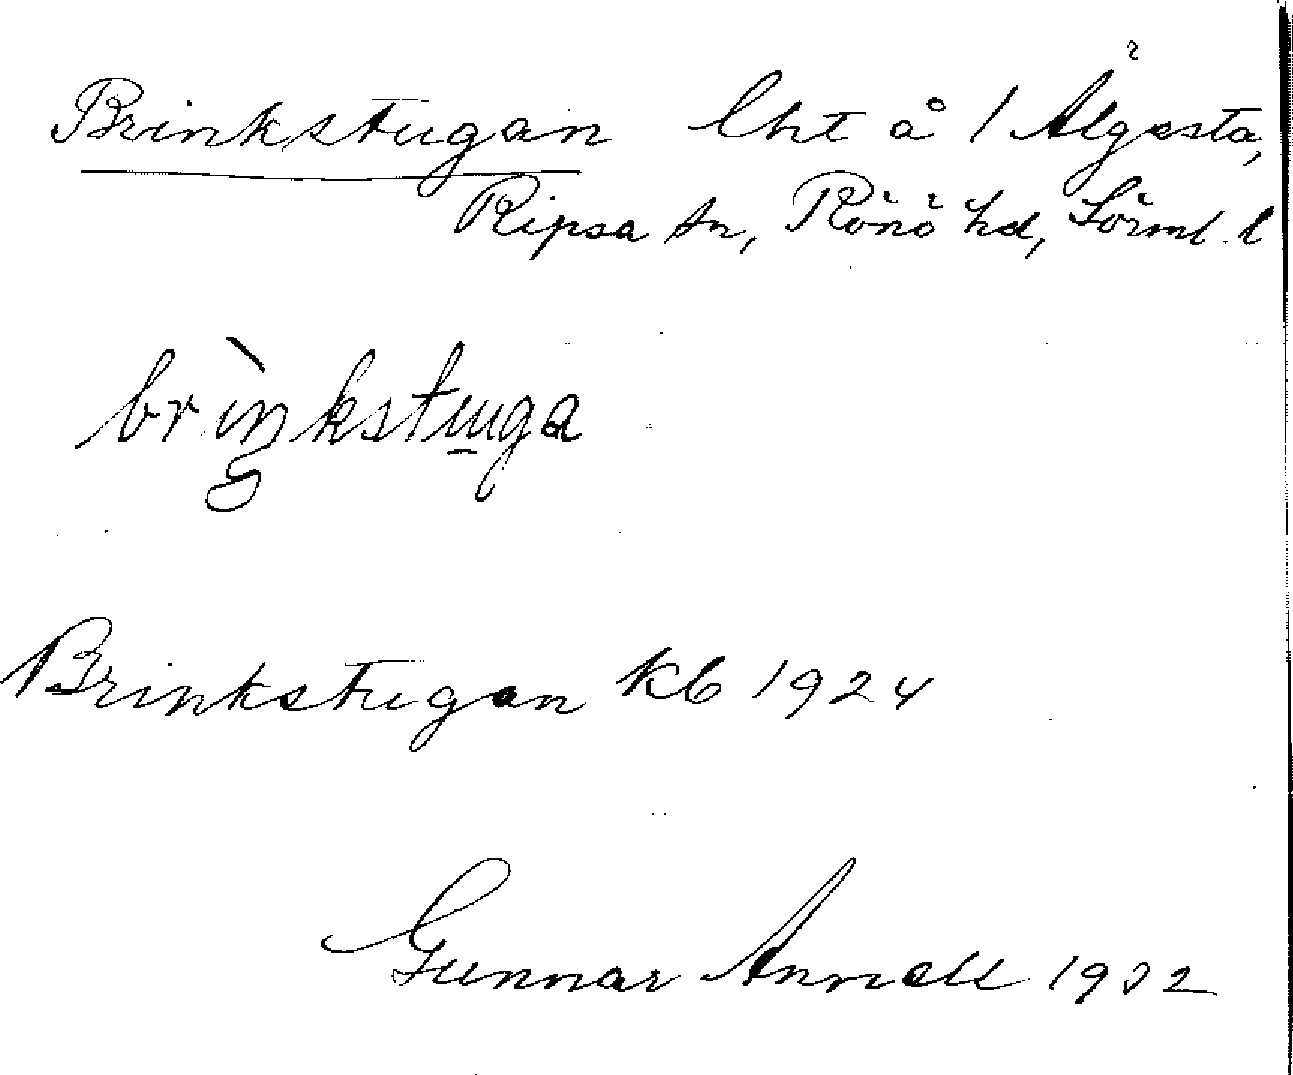 Brinkstugan lht å 1 Älgesta,
Ripsa sn, Rönö hd, Sörml. l
brìŋkstuga
Brinkstugan kb 1924
Gunnar Annell 1932